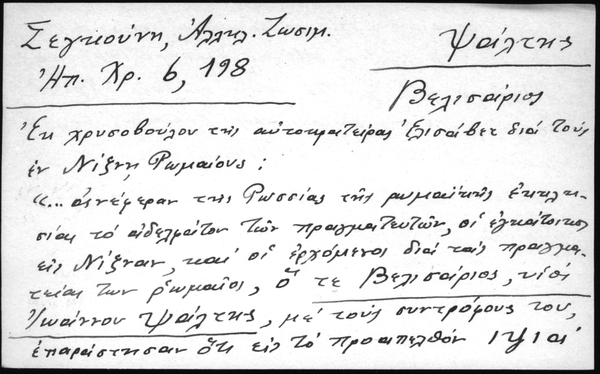 Σεγκούνη, Ἀλληλ. Ζωσιμ.
Ψάλτης
Ἠπ. Χρ. 6, 198
Βελισάριος
Ἐκ χρυσοβούλου τῆς αὐτοκρατείρας Ἐλισάβετ διά τούς
ἐν Νίζνῃ Ρωμαίους:
"... ἀνέφεραν τῆς Ρωσσίας τῆς ρωμαϊκῆς ἐκκλη-
σίας τό ἀδελφᾶτον τῶν πραγματευτῶν, οἱ ἐγκάτοικοι
εἰς Νίζναν, καί οἱ ἐρχόμενοι διά τάς πραγμα-
τείας των ρωμαῖοι, ὅ τε Βελισάριος, υἱός
Ἰωάννου Ψάλτης, μέ τούς συντρόφους του,
ἐπαράστησαν ὅτι εἰς τό προαπελθόν